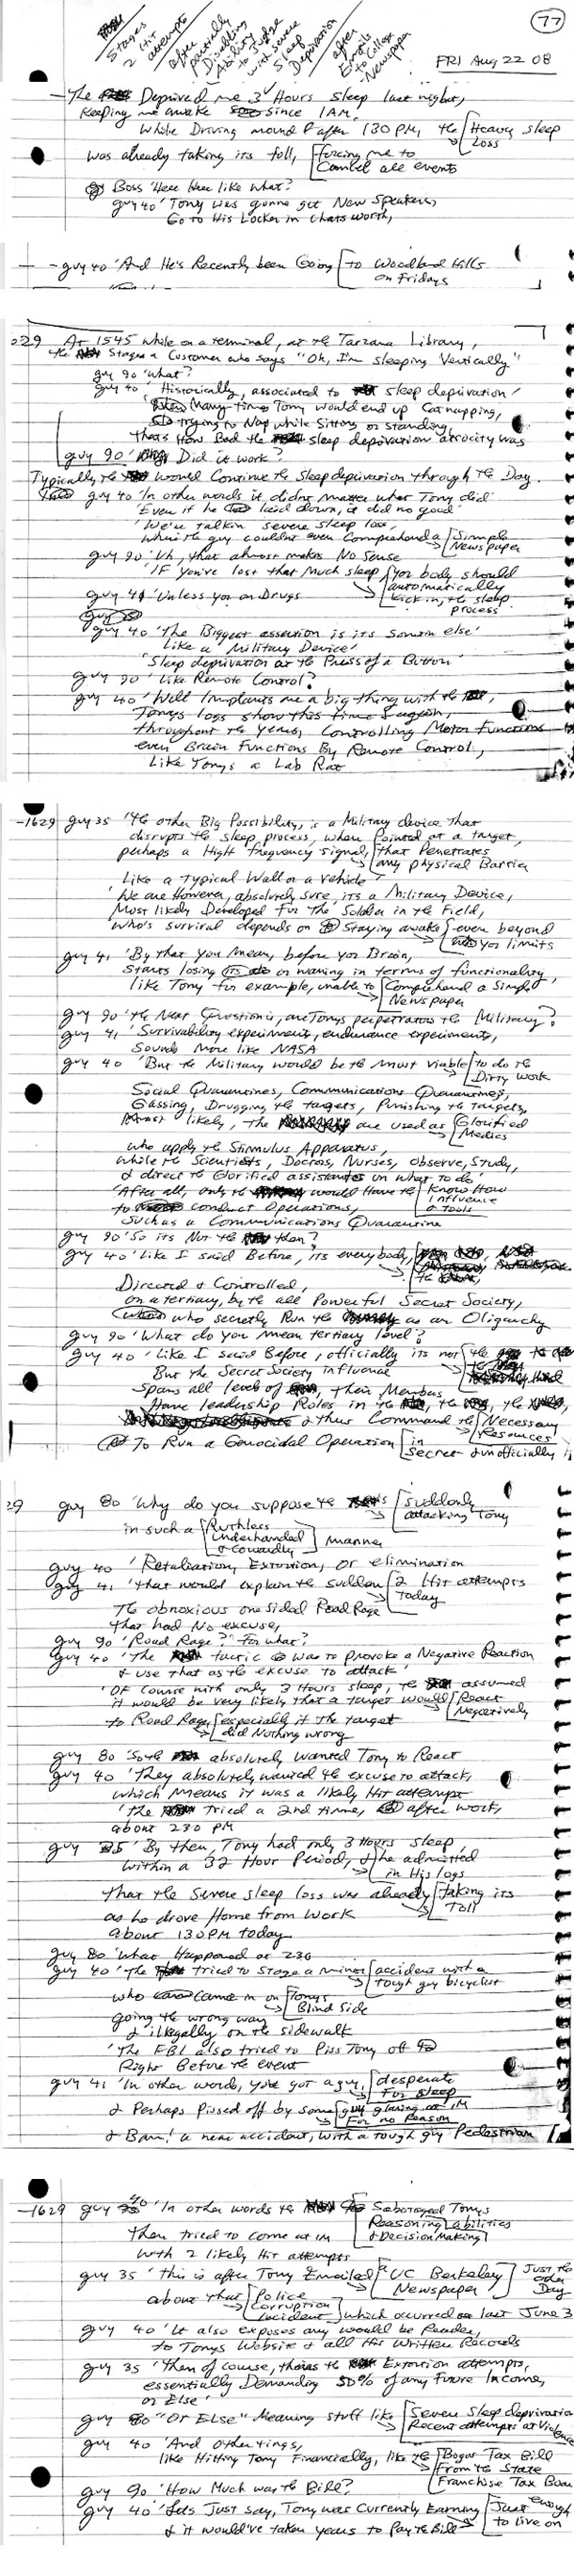 77
Stages
2 Hit
attempts
after
partially
Disabling
Ability
to Judge
with severe
Sleep
Deprivation
after
Emails
to College
Newspaper
FRI Aug 22 08
- The Deprived me 3 Hours sleep last night,
Keeping me awake since 1AM.
While Driving around after 130 PM, the Heavy sleep
Loss
was already taking its toll, forcing me to
Cancel all events
Boss 'Here Here like what?
guy 40 'Tony was gonna get New Speakers,
Go to His Locker in Chatsworth,
- guy 40 'And He's Recently been Going to Woodland Hills
on Fridays
At 1545 while on a terminal, at the Tarzana Library,
the Stages a Customer who says "Oh, I'm sleeping Vertically"
guy 90 'What?
guy 40 'Historically, associated to sleep deprivation'
'Many times Tony would end up Catnapping,
trying to Nap while Sitting or standing,
thats How Bad the sleep deprivation atrocity was
guy 90 'Did it work?
Typically the would Continue the Sleep deprivation through the Day.
guy 40 'In other words it didnt matter what Tony did'
'Even if he laid down, it did no good'
'We're talkin severe sleep loss,
Where the guy couldnt even Comprehend a Simple
Newspaper
guy 90 'Uh, that almost makes No Sense
'IF you've lost that Much sleep you body should
automatically
Kick in, the sleep
process
guy 41 'Unless your on Drugs
guy 40 'The Biggest assertion is its somthin else'
Like a 'Military Device'
'Sleep deprivation at the Press of a Button'
guy 90 'Like Remote Control?
guy 40 'Well Implants are a big thing with the,
Tonys logs show this time & again,
throughout the years, Controlling Motor Functions
even Brain Functions By Remote Control,
Like Tonys a Lab Rat
-1629 guy 35 'the other Big Possibility, is a Military device that
disrupts the sleep process, when Pointed at a target,
perhaps a High frequency signal, that Penetrates
any physical Barrier
Like a typical Wall or a Vehicle
'We are However, absolutely sure, its a Military Device,
Most likely Developed For the Soldier in the Field,
Who's survival depends on Staying awake even beyond
yor limits
guy 41 'By that you Mean, before yor Brain,
Starts losing or waning in terms of functionality,
like Tony for example, unable to Comprehend a Simple
Newspaper
guy 90 'the Next Question is, are Tonys perpetrators the Military?
guy 41 'Survivability experiments, endurance experiments,
Sounds More like NASA
guy 40 'But the Military would be the Most viable to do the
Dirty work
Social Quarantines, Communications Quarantines,
Gassing, Drugging the targets, Punishing the targets,
Most likely, the are used as Glorified
Medics
who apply the Stimulus Apparatus,
while the Scientists, Doctors, Nurses, observe, Study,
& direct the Glorified assistants on what to do'
'After all, only the would Have the Know How
influence
& Tools
to conduct Operations,
Such as a Communications Quarantine
guy 90 'So its Not the then?
guy 40 'Like I said Before, its everybody,
Directed & Controlled,
on a tertiary, by the all Powerful Secret Society,
who secretly Run the as an Oligarchy
guy 90 'What do you Mean tertiary level?
guy 40 'Like I said Before, officially its not the
But the Secret Society influence
Spans all levels of, their Members
Have leadership Roles in the, the, the,
& thus Command the Necessary
Resources
To Run a Genocidal Operation in
secret & unofficially
29 guy 80 'Why do you suppose the suddenly
attacking Tony
in such a Ruthless
Underhanded
& Cowardly
Manner
guy 40 'Retaliation, Extortion, Or elimination
guy 41 'that would explain the sudden 2 Hit attempts
today
The obnoxious one sided Road Rage
that had No excuse,
guy 90 'Road Rage?' For what?
guy 40 'The tactic was to provoke a Negative Reaction
& use that as the excuse to attack'
'OF Course with only 3 Hours sleep, the assumed
it would be very likely that a target would React
Negatively
to Road Rage, especially if the target
did Nothing wrong
guy 80 'So the absolutely wanted Tony to React
guy 40 'They absolutely wanted the excuse to attack,
which Means it was a likely Hit attempt
'The Tried a 2nd time, after work,
about 230 PM
guy 35 'By then, Tony had only 3 Hours sleep,
within a 32 Hour Period, & he admitted
in His logs
that the Severe sleep loss was already taking its
Toll
as he drove Home from Work
about 130PM today
guy 80 'what Happened at 230
guy 40 'the tried to Stage a minor accident with a
tough guy bicyclist
who came in on Tonys
Blind side
going the wrong way
& illegally on the sidewalk
'The FBI also tried to Piss Tony off
Right Before the event
guy 41 'In other words, you've got a guy, desperate
For sleep
& Perhaps Pissed off by some guy glaring at im
For no Reason
& Bam! a near accident, with a tough guy Pedestrian
-1629 guy 40 'In other words the Sabotaged Tonys
Reasoning abilities
& Decision Making
then tried to come at im
with 2 likely Hit attempts
guy 35 'this is after Tony Emailed a UC Berkeley
Newspaper
Just the
other
Day
about that Police
Corruption
incident
which occurred on last June 3
guy 40 'It also exposes any would be Reader,
to Tonys Website & all His Written Records
guy 35 'Then of course, theres the Extortion attempts,
essentially Demanding 50% of any Future Income,
or Else'
guy 80 "Or ELSE" Meaning stuff like Severe Sleep deprivation
Recent attempts at Violence
guy 40 'And other tings,
like Hitting Tony Financially, like the Bogus Tax Bill
From the State
Franchise Tax Board
guy 90 'How Much was the Bill?
guy 40 'Lets Just say, Tony was Currently Earning Just enough
to live on
& it would've taken years to Pay the Bill